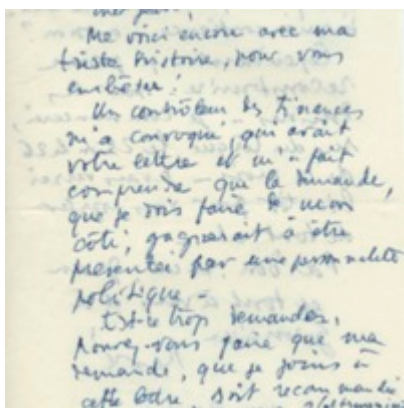 Me voici encore avec ma
triste histoire, pour vous
embêter!
Un contrôleur des Finances
m'a convoqué, qui avait
votre lettre et m'a fait
comprendre que la demande,
que je dois faire de mon
côté, gagnerait à être
présentée par une personnalité
politique -
Est-ce trop demander,
pouvez-vous faire que ma
demande, que je joins à
cette lettre, soit recommandée